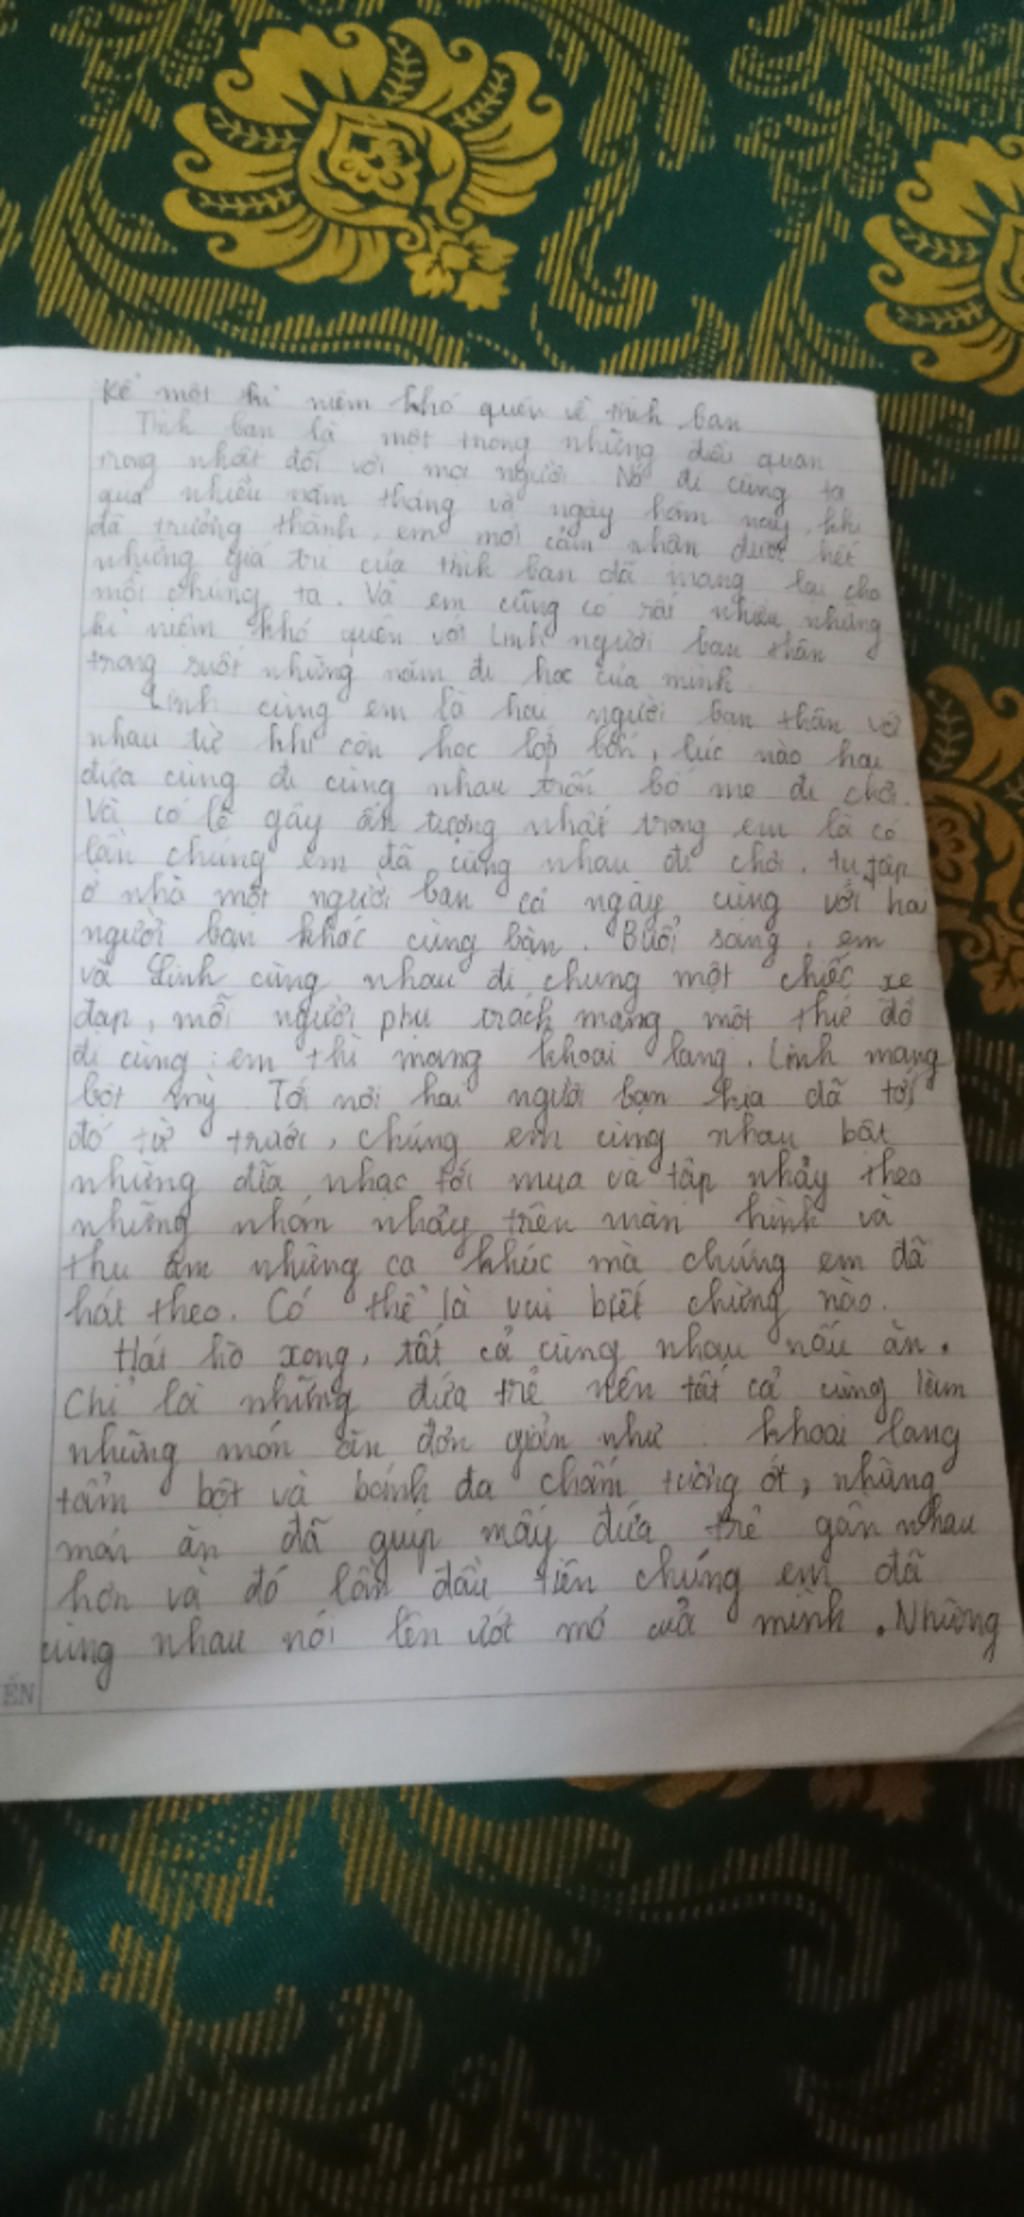 Kể một kỉ niệm khó quên về tình bạn
Tình bạn là một trong những điều quan
trọng nhất đối với mọi người. Nó đi cùng ta
qua nhiều năm tháng và ngày hôm nay, khi
đã trưởng thành, em mới cảm nhận được hết
những giá trị của tình bạn đã mang lại cho
mỗi chúng ta. Và em cũng có rất nhiều những
kỉ niệm khó quên với Linh người bạn thân
trong suốt những năm đi học của mình.
Linh cùng em là hai người bạn thân với
nhau từ khi còn học lớp bốn, lúc nào hai
đứa cũng đi cùng nhau trốn bố mẹ đi chơi.
Và có lẽ gây ấn tượng nhất trong em là có
lần chúng em đã cùng nhau đi chơi, tụ tập
ở nhà một người bạn cả ngày cùng với hai
người bạn khác cùng bàn. Buổi sáng, em
và Linh cùng nhau đi chung một chiếc xe
đạp, mỗi người phụ trách mang một thứ đồ
đi cùng: em thì mang khoai lang, Linh mang
bột mỳ. Tới nơi hai người bạn kia đã tới
đó từ trước, chúng em cùng nhau bật
những đĩa nhạc tới mua và tập nhảy theo
những nhóm nhảy trên màn hình và
thu âm những ca khúc mà chúng em đã
hát theo. Có thể là vui biết chừng nào.
Hát hò xong, tất cả cùng nhau nấu ăn.
Chỉ là những đứa trẻ nên tất cả cùng làm
những món ăn đơn giản như khoai lang
tẩm bột và bánh đa chấm tương ớt, những
món ăn đã giúp mấy đứa trẻ gần nhau
hơn và đó lần đầu tiên chúng em đã
cùng nhau nói lên ướt mớ của mình. Những
ẾN